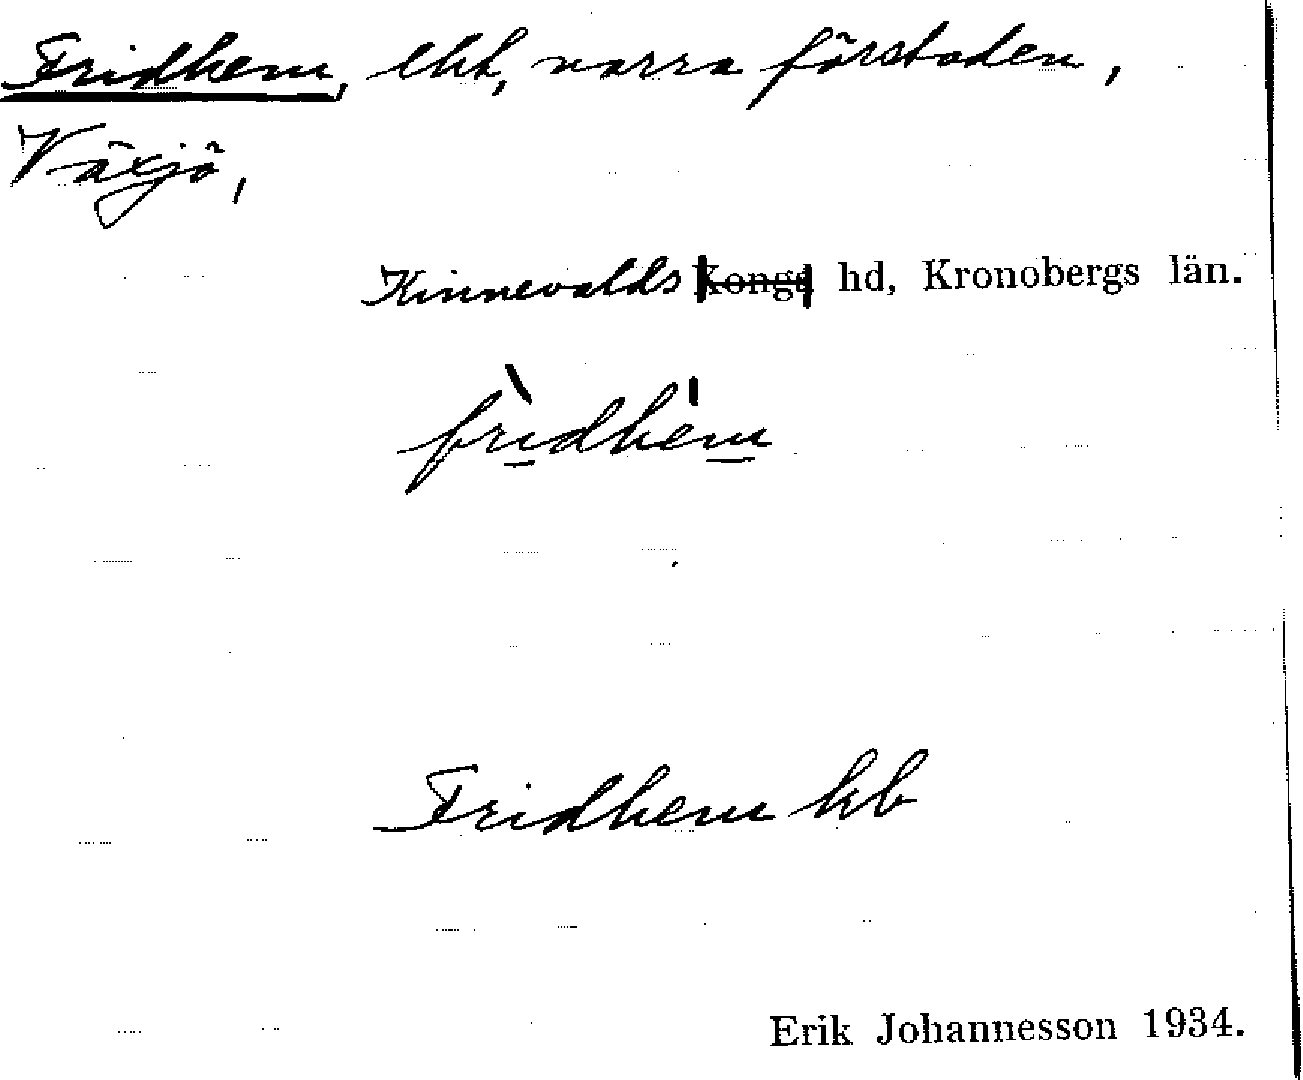 Fridhem, lht, norra förstaden,
Växjö,
Kinnevalds Konga hd, Kronobergs län.
frìdhe̍m
Fridhem kb
Erik Johannesson 1934.